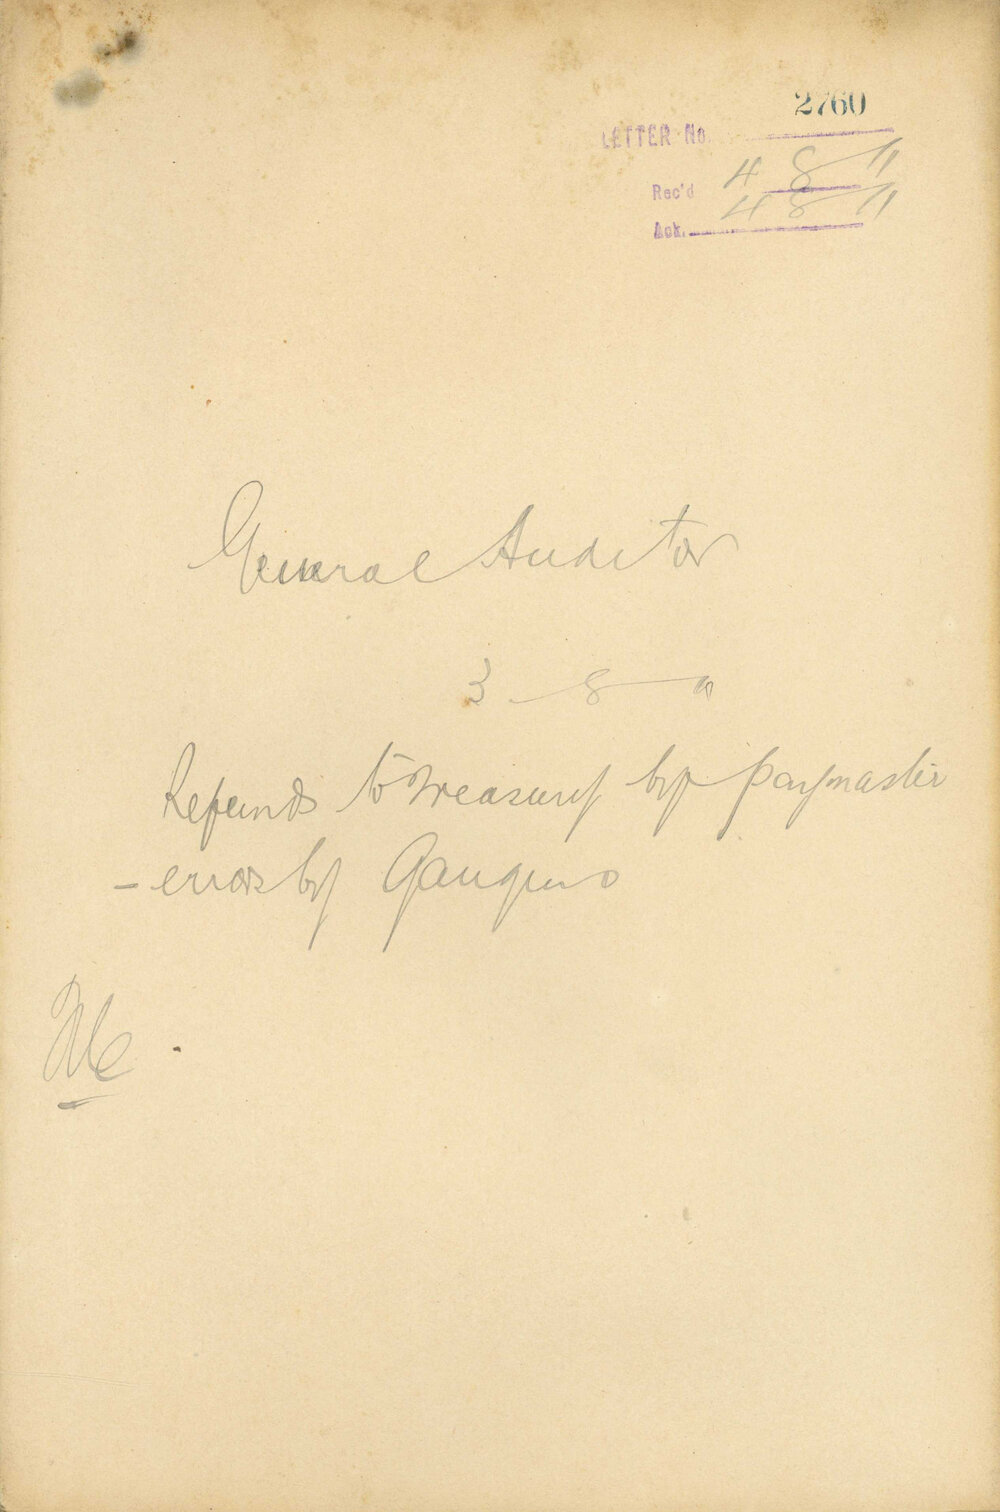 2760
LETTER No.
Rec'd 4 8 11
Ack. 4 8 11
General Auditor
3 8 11
Refunds to Treasury by paymaster
- errors by Gaugers